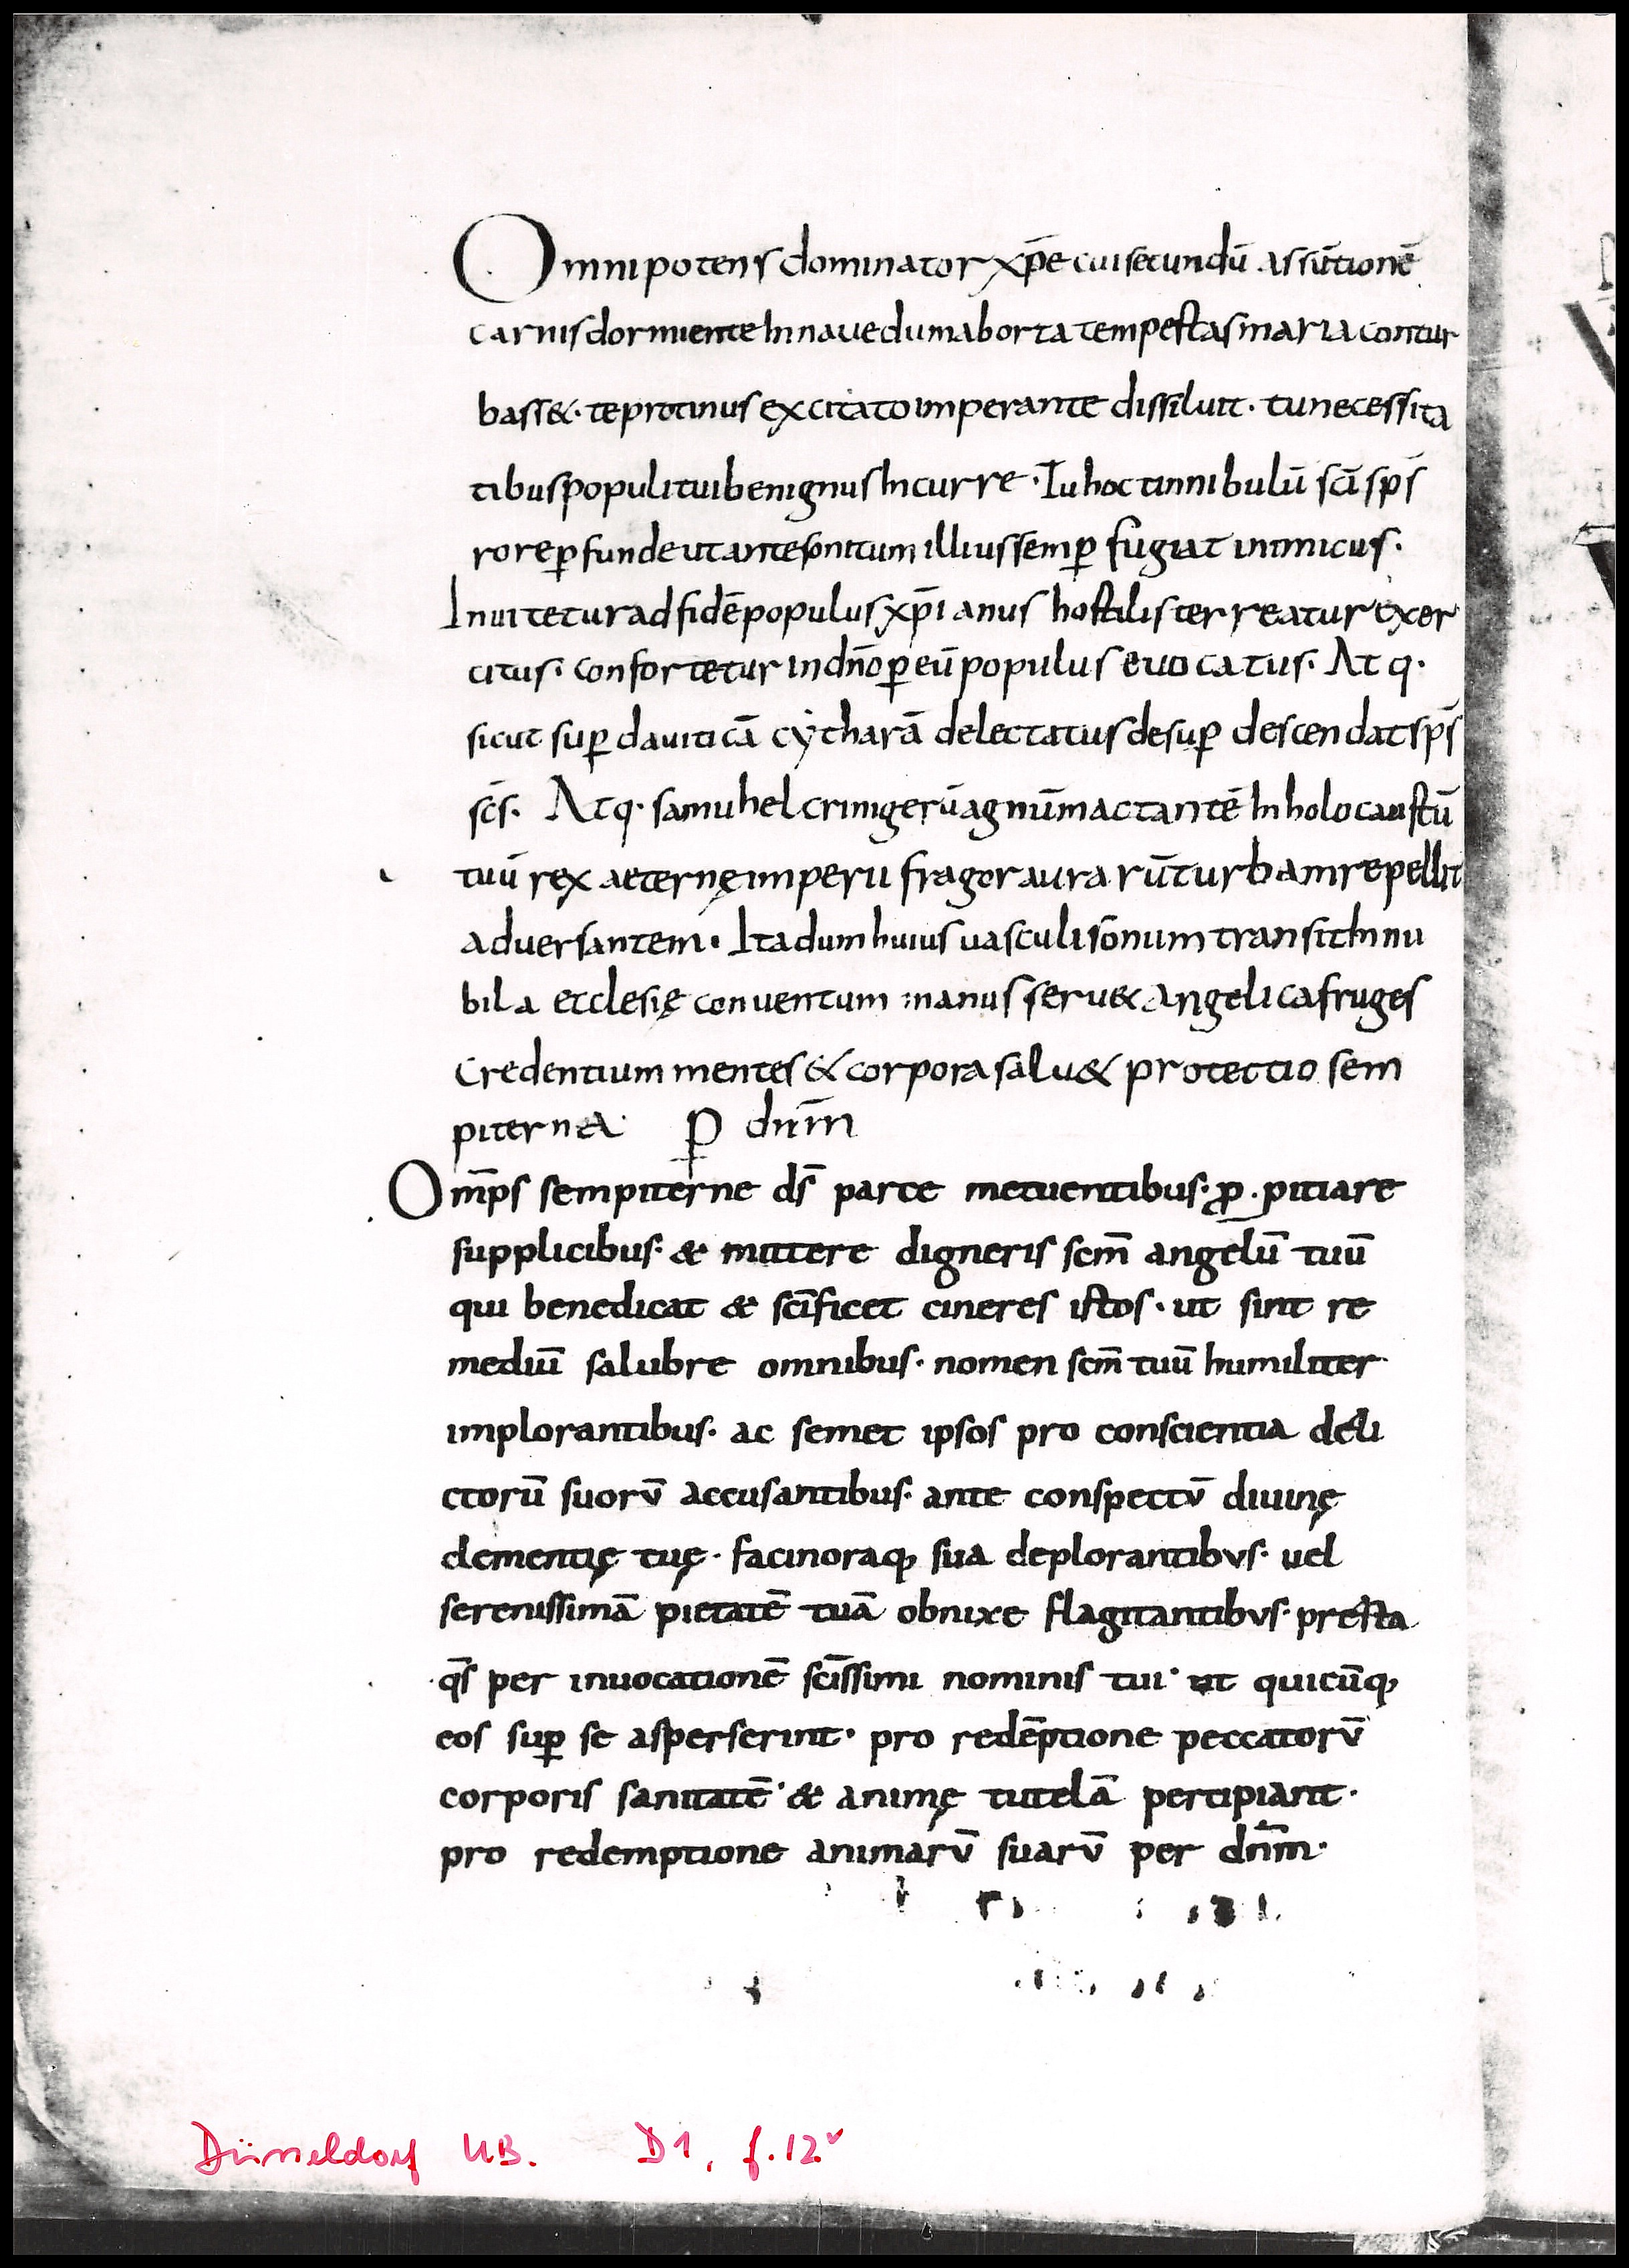 Omnipotens dominator xp̄e cui secundū assūtionē
carnis dormiente In naue dum aborta tempestas maria contur
bass&· te protinus excitato imperante dissiluit· tu necessita
tibus populi tui benignus Incurre· Tu hoc tinnibulū sc̄i sp̄s
rore ꝑfunde ut ante sonitum illius semꝑ fugiat inimicus·
Inuitetur ad fidē populus xp̄ianus hostilis terreatur exer
citus· confortetur in dn̄o ꝑ eū populus euocatus· Atq·
sicut suꝑ dauiticā cẏtharā delectatus desuꝑ descendat sp̄s
sc̄s· Atq· samuhel crinigerū agnū mactantē In holocaustū
tuū rex aeternę imperii fragor aurarū turbam repellit
aduersantem· Ita dum huius uasculi sonum transit In nu
bila ecclesię conuentum manus seru& angelica fruges
credentium mentes & corpora salu& protectio sem
piterna· ꝑ dn̄m
Om̄ps sempiterne ds̄ parce metuentibus· ꝓpitiare
supplicibus· & mittere digneris scm̄ angelū tuū
qui benedicat & sc̄ificet cineres istos· ut sint re
mediū salubre omnibus· nomen scm̄ tuū humiliter
implorantibus· ac semet ipsos pro conscientia deli
ctorū suorū accusantibus· ante conspectū diuinę
clementię tuę· facinoraq; sua deplorantibus· uel
serenissimā pietatē tuā obnixe flagitantibus· presta
qs̄ per inuocationē sc̄issimi nominis tui· ut quicūq;
eos suꝑ se asperserint· pro redēptione peccatorū
corporis sanitatē· & animę tutelā percipiant·
pro redemptione animarū suarū per dn̄m·
Düsseldorf UB. D1, f.12ᵛ